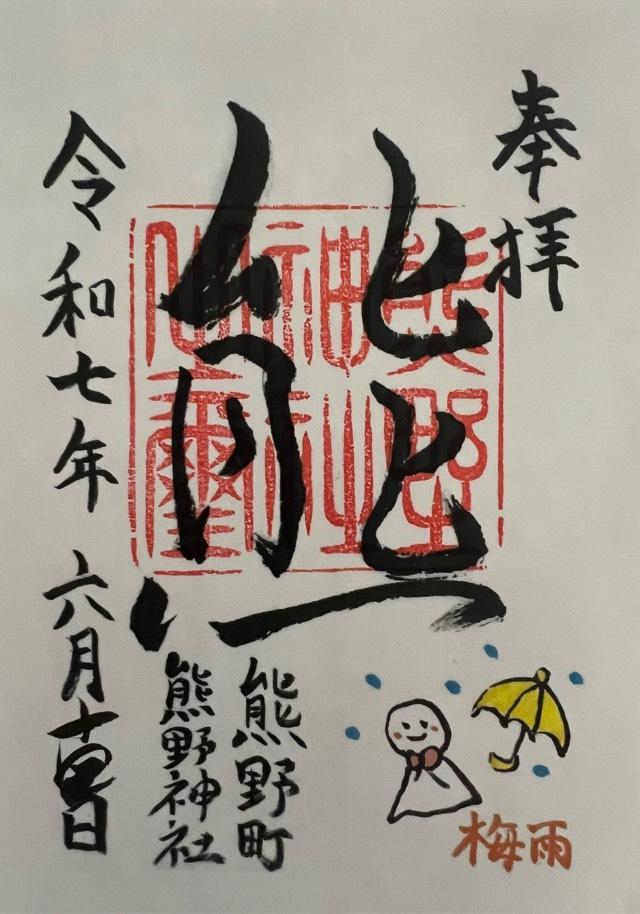 奉拝
熊
熊野
神社
熊野町
熊野神社
令和七年 六月十 日
梅雨